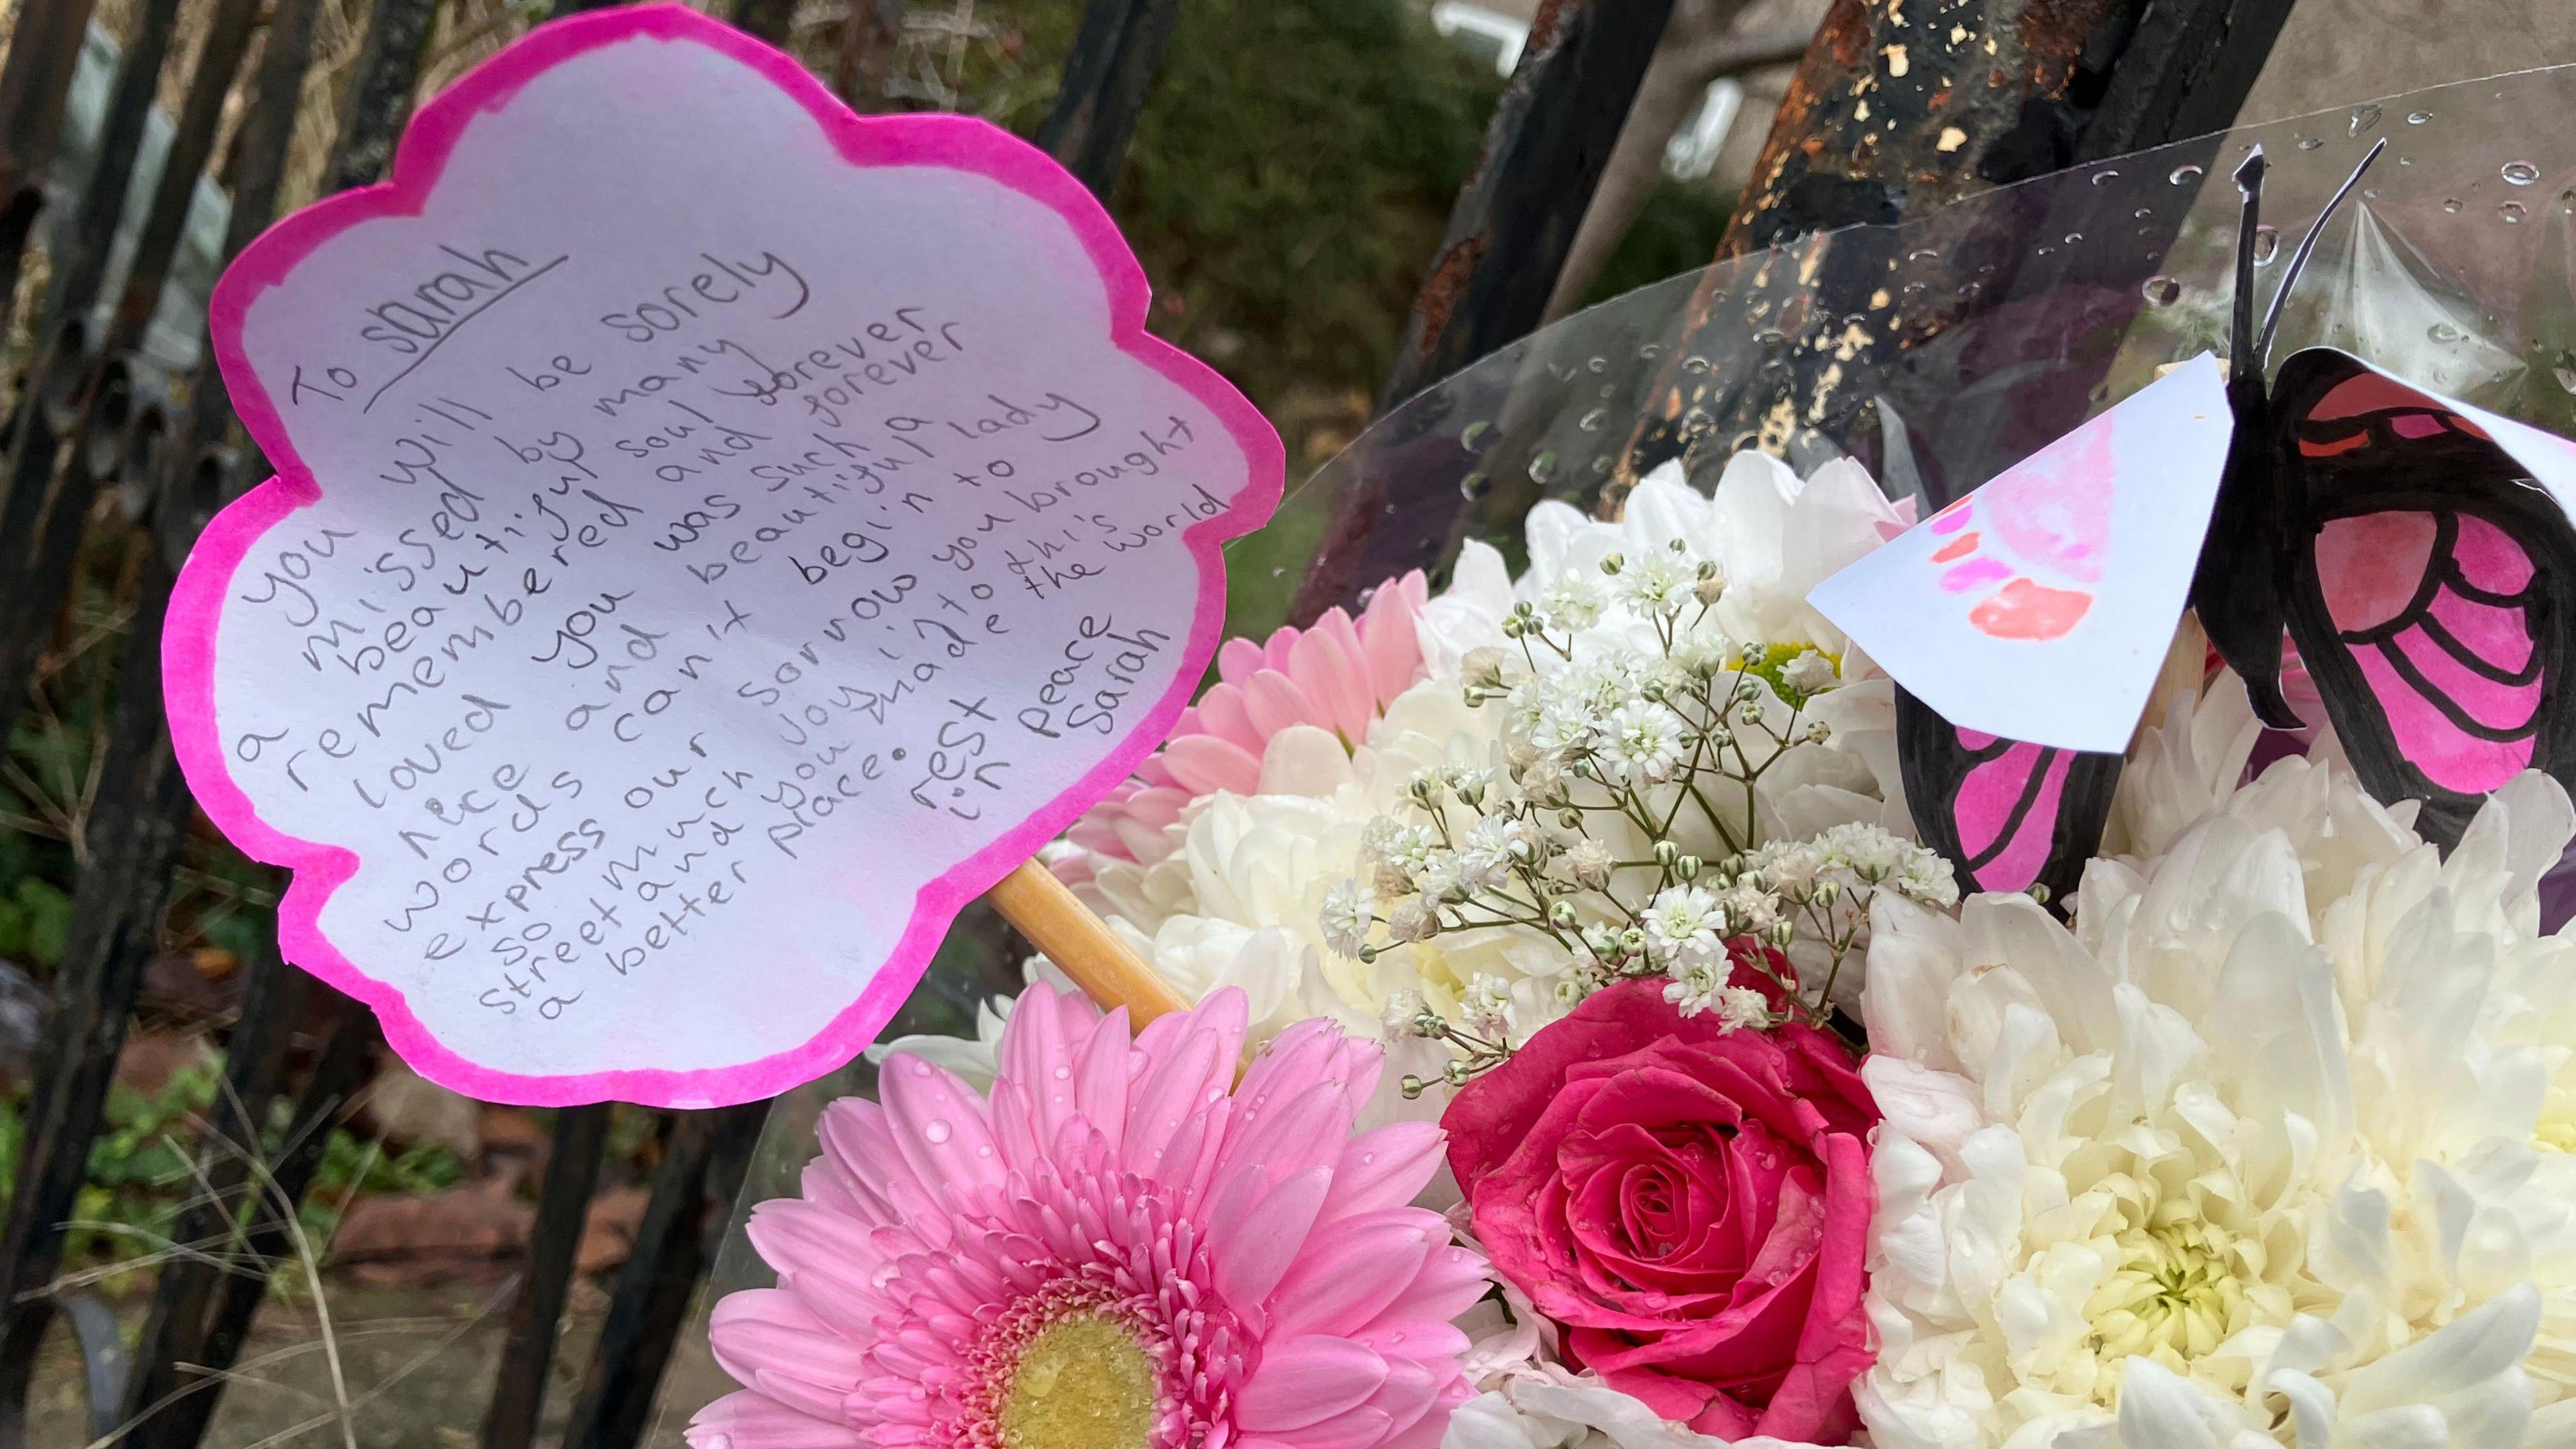 To Sarah
you will be sorely
missed by many
a beautiful soul forever
remembered and forever
loved you was such a
nice and beautiful lady
words can't begin to
express our sorrow you brought
so much joy into this
street and you made the world
a better place.
rest
in peace
Sarah